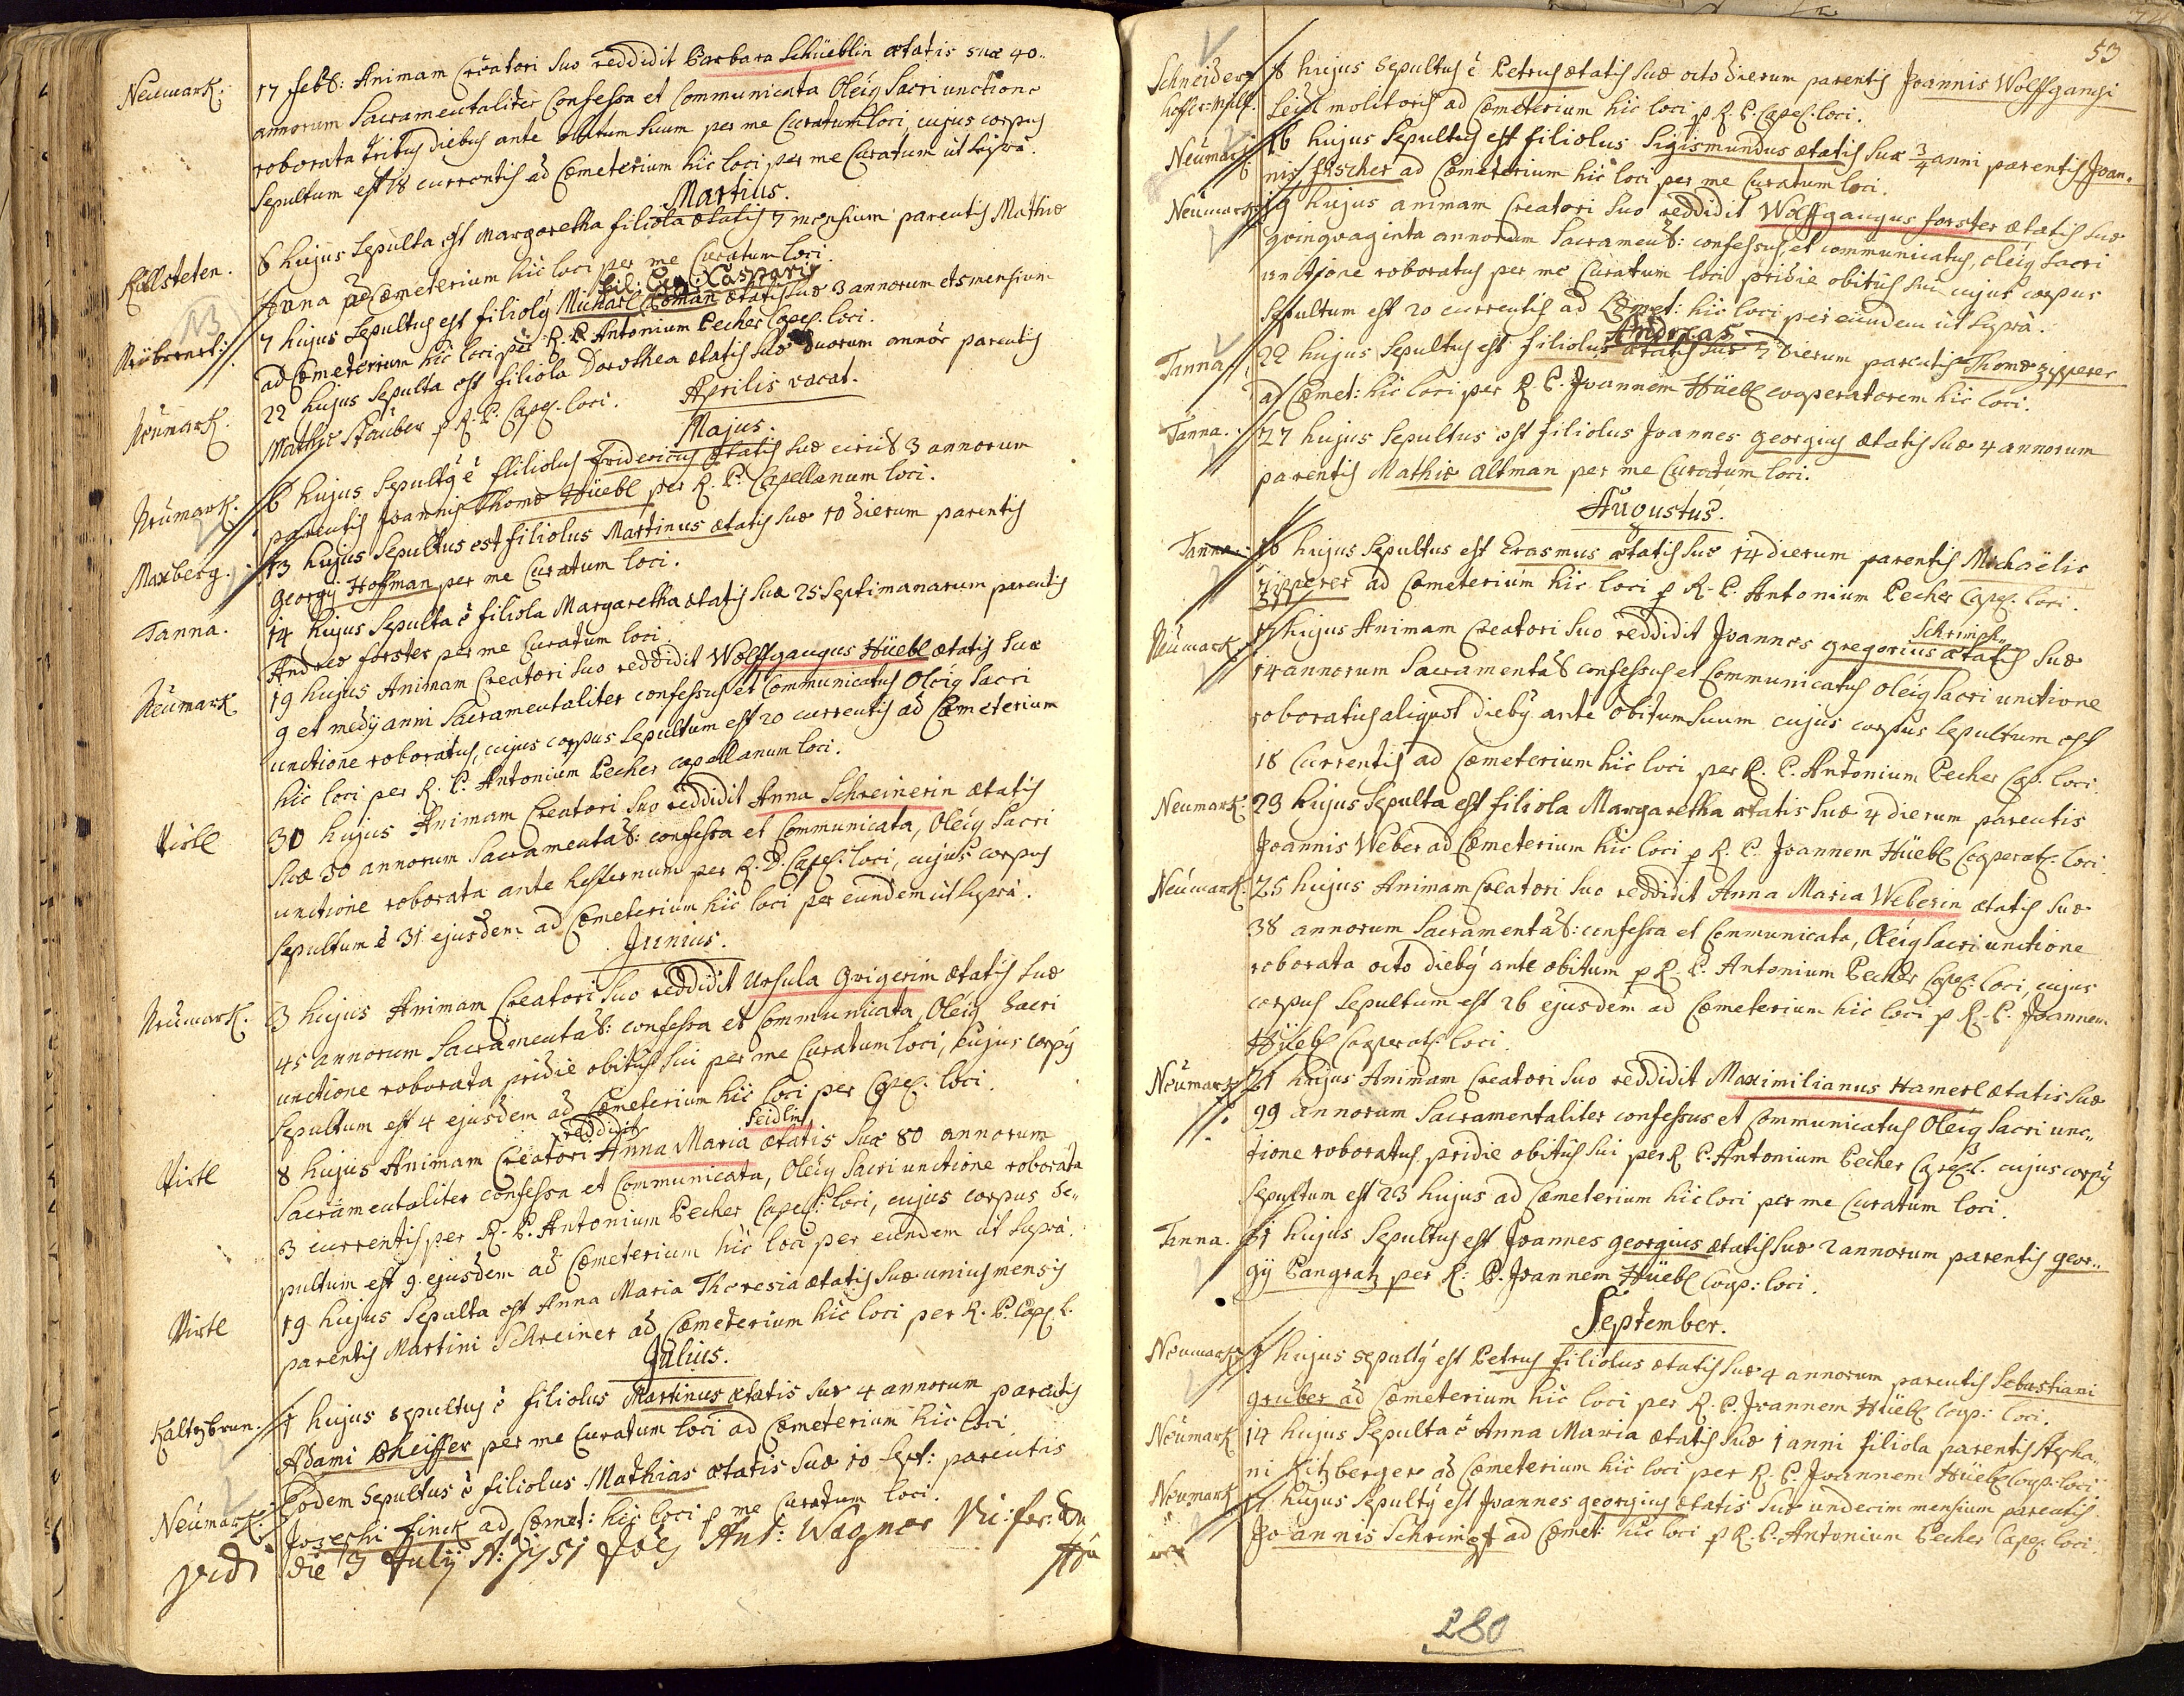 Neumark. 17 febr: Animam Creatori suo reddidit Barbara Schüeblin ætatis suæ 40..
annorum Sacramentaliter Confessa et Communicata Oleiq Sacri unctione
roborata tribus diebus ante obitum suum per me Curatum loci, cujus corpus
Sepultum est 18 currentis ad Cœmeterium hic loci per me Curatum ut supra.
Martius.
6 hujus Sepulta est Margaretha filiola ætatis 7 mensium parentis Mathiæ
Anna ad Cœmeterium hic loci per me Curatum loci.
7 hujus Sepultus est filiolq Michael Coman ætatis suæ 3 annorum et 5 mensium
ad Cœmeterium hic loci per R. P. Antonium Pecher Capel. loci.
Neumark. 22 hujus Sepulta est filiola Dorothea ætatis suæ duorum annor parentis
Mathiæ Stauber p R. P. Capel. loci.
Aprilis vacat.
Majus.
Neumark. 6 hujus Sepultq ē filiolus Fridericus ætatis suæ circit 3 annorum
parentis Joannis Thomæ Hüebl per R. P. Capellanum loci.
Maxberg. 13 hujus Sepultus est filiolus Martinus ætatis suæ 10 dierum parentis
Georgij Hoffman per me Curatum loci.
Tanna. 14 hujus Sepulta ē filiola Margaretha ætatis suæ 25 Septimanarum parentis
Andreæ forster per me Curatum loci.
Neumark 19 hujus Animam Creatori suo reddidit Wolffgangus Hüebl ætatis suæ
9 et medij anni Sacramentaliter confessus et Communicatus Oleiq Sacri
unctione roboratus, cujus corpus Sepultum est 20 currentis ad Cœmeterium
hic loci per R. P. Antonium Pecher capellanum loci.
Virtl 30 hujus Animam Creatori suo reddidit Anna Schreinerin ætatis
suæ 50 annorum Sacramentat: confessa et Communicata, Oleiq Sacri
unctione roborata ante hesternum per R. P. Capel. loci, cujus corpus
Sepultum ē 31 ejusdem ad Cœmeterium hic loci per eundem ut supra.
Junius.
Neumark. 3 hujus Animam Creatori suo reddidit Ursula Grigerin ætatis suæ
45 annorum Sacramentat: confessa et Communicata, Oleiq Sacri
unctione roborata pridie obitus sui per me Curatum loci, cujus corpq
Sepultum est 4 ejusdem ad Cœmeterium hic loci per Capel. loci.
reddidit Seidlin
Virtl 8 hujus Animam Creatori Anna Maria ætatis suæ 80 annorum
Sacramentaliter confessa et Communicata, Oleiq Sacri unctione roborata
3 currentis per R. P. Antonium Pecher Capel: loci, cujus corpus Se..
pultum est 9 ejusdem ad Cœmeterium hic loci per eundem ut supra.
Virtl 19 hujus Sepulta est Anna Maria Theresia ætatis suæ unius mensis
parentis Martini Schreiner ad Cœmeterium hic loci per R. P. Capel. l.
Julius.
Kaltzbrun. 1 hujus sepultus ē filiolus Martinus ætatis suæ 4 annorum parentis
Adami Pheiffer per me Curatum loci ad Cœmeterium hic loci
Neumark. Eodem Sepultus ē filiolus Mathias ætatis suæ 10 Sept: parentis
Josephi Finck ad Cœmet: hic loci p me Curatum loci.
vidi die 3 July Aō 1751 Joes Ant: Wagner
53
Schneider hoffer-Mill. 8 hujus Sepultus ē Petrus ætatis suæ octo dierum parentis Joannis Wolffgangi
Seidl molitoris ad Cœmeterium hic loci p R. P. Capel. loci.
Neumark 16 hujus Sepultus est filiolus Sigismundus ætatis suæ 3/4 anni parentis Joan..
nis fischer ad Cœmeterium hic loci per me Curatum loci.
Neumark 19 hujus animam Creatori suo reddidit Wolffgangus forster ætatis suæ
quinquaginta annorum Sacrament: confessus, et communicatus, oleiq Sacri
unctione roboratus per me Curatum loci pridie obitus sui cujus corpus
Sepultum est 20 currentis ad Cœmet: hic loci per eundem ut supra.
Andreas
Tanna. 22 hujus Sepultus est filiolus ætatis suæ 7 dierum parentis Thomæ Zipperer
ad Cœmet: hic loci per R. P. Joannem Hüebl cooperatorem hic loci.
Tanna. 27 hujus Sepultus est filiolus Joannes georgius ætatis suæ 4 annorum
parentis Mathiæ Altman per me Curatum loci.
Augustus.
Tanna. 16 hujus Sepultus est Erasmus ætatis suæ 14 dierum parentis Michaëlis
Zipperer ad Cœmeterium hic loci p R. P. Antonium Pecher Capel. loci.
Schrimpf
Neumark. 17 hujus Animam Creatori suo reddidit Joannes gregorius ætatis suæ
14 annorum Sacramentat confessus et Communicatus oleiq Sacri unctione
roboratus aliquot diebq ante obitum suum cujus corpus sepultum est
18 Currentis ad Cœmeterium hic loci per R. P. Antonium Pecher Cap. loci.
Neumark. 23 hujus Sepulta est filiola Margaretha ætatis suæ 4 dierum parentis
Joannis Weber ad Cœmeterium hic loci p R. P. Joannem Hüebl Cooperat. loci.
Neumark. 25 hujus Animam Creatori suo reddidit Anna Maria Weberin ætatis suæ
38 annorum Sacramentat: confessa et Communicata, Oleiq Sacri unctione
roborata octo diebq ante obitum p R. P. Antonium Pecher Capel: loci, cujus
corpus Sepultum est 26 ejusdem ad Cœmeterium hic loci p R. P. Joannem
Hüebl Cooperat. loci.
Neumark 21 hujus Animam Creatori suo reddidit Maximilianus Hamerl ætatis suæ
99 annorum Sacramentaliter confessus et Communicatus Oleiq Sacri unc..
tione roboratus pridie obitus sui per R. P. Antonium Pecher Capel. l. cujus corpq
Sepultum est 23 hujus ad Cœmeterium hic loci per me Curatum loci.
Tanna. 31 hujus Sepultus est Joannes georgius ætatis suæ 2 annorum parentis geor..
gij Pangratz per R: P. Joannem Hüebl Coop: loci.
September.
Neumark hujus sepultq est Petrus filiolus ætatis suæ 4 annorum parentis Sebastiani
gruber ad Cœmeterium hic loci per R. P. Joannem Hüebl Coop: loci.
Neumark 14 hujus Sepulta ē Anna Maria ætatis suæ 1 anni filiola parentis Stepha..
ni Kitzberger ad Cœmeterium hic loci per R. P. Joannem Hüebl Coop: loci.
Neumark 17 hujus Sepultq est Joannes georgius ætatis suæ undecim mensium parentis
Joannis Schrimpf ad Cœmet: hic loci p R. P. Antonium Pecher Capel. loci.
280